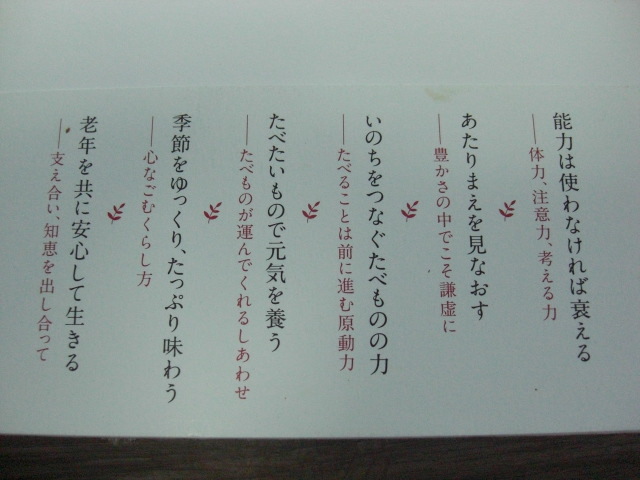 能力は使わなければ衰える
――体力、注意力、考える力
あたりまえを見なおす
――豊かさの中でこそ謙虚に
いのちをつなぐたべものの力
――たべることは前に進む原動力
たべたいもので元気を養う
――たべものが運んでくれるしあわせ
季節をゆっくり、たっぷり味わう
――心なごむくらし方
老年を共に安心して生きる
――支え合い、知恵を出し合って